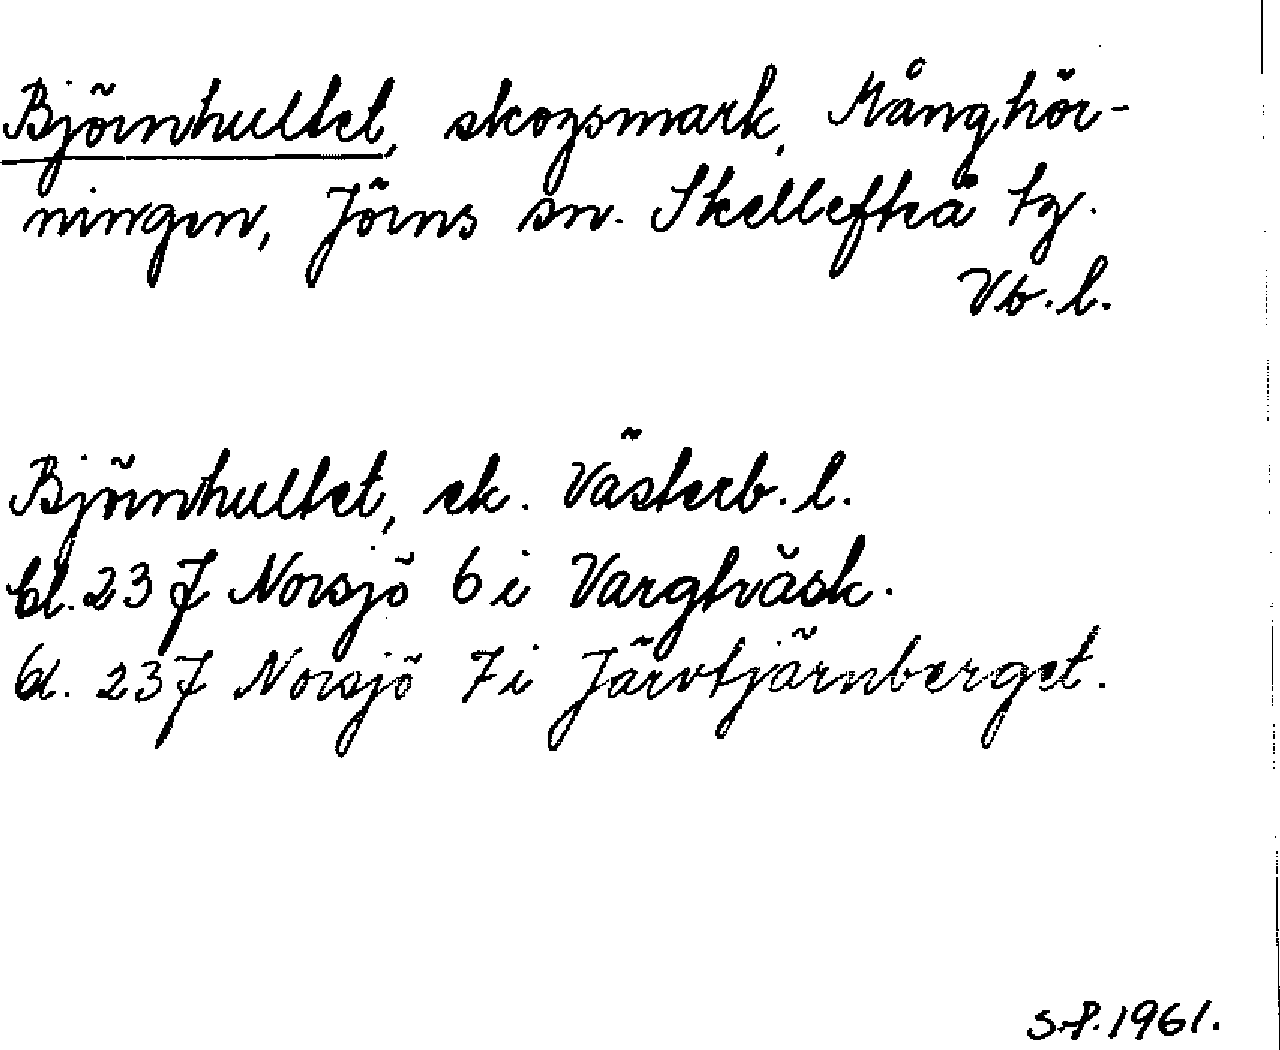 Björnhultet, skogsmark, Månghör-
ningen, Jörns sn. Skellefteå tg.
Vb. l.
Björnhultet, ek. Västerb. l.
bl. 23 J Norsjö 6 i Vargträsk.
bl. 23 J Norsjö 7 i Järvtjärnberget.
S.P. 1961.